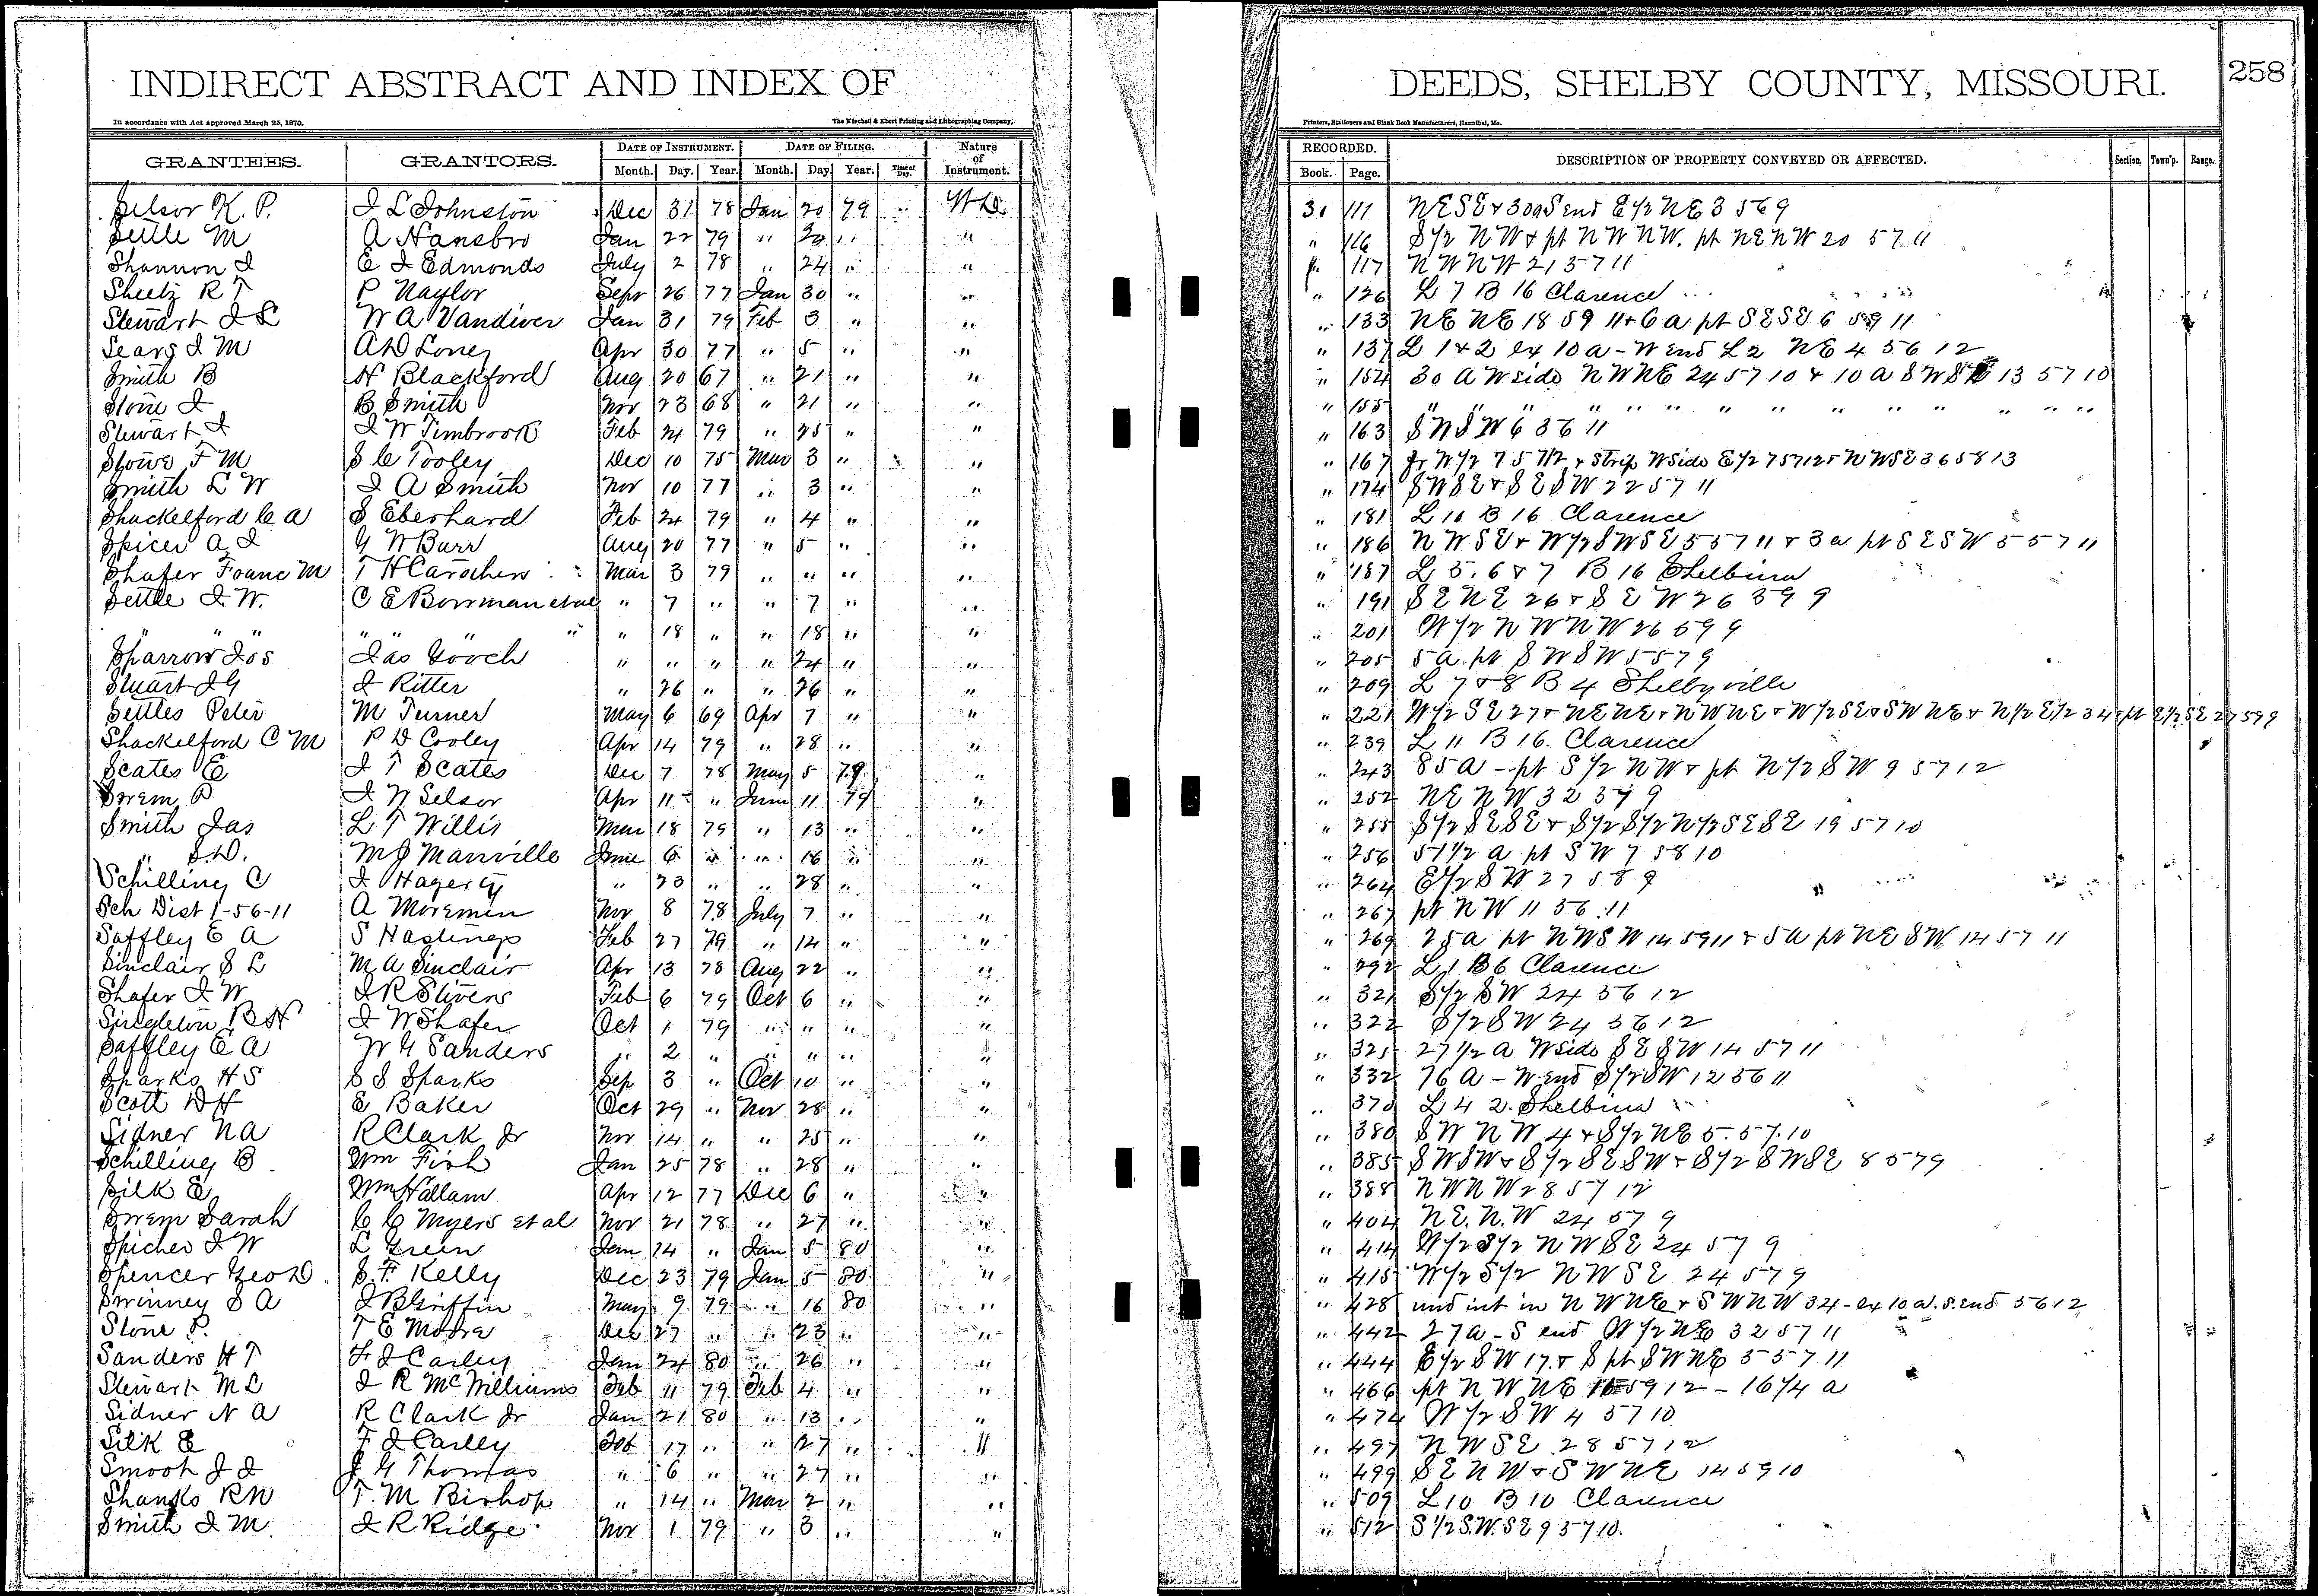 INDIRECT ABSTRACT AND INDEX OF DEEDS, SHELBY COUNTY, MISSOURI. 258
In accordance with Act approved March 25, 1870. The Winchell & Ebert Printing and Lithographing Company, Printers, Stationers and Blank Book Manufacturers, Hannibal, Mo.
GRANTEES. GRANTORS. DATE OF INSTRUMENT. DATE OF FILING. Nature of Instrument. RECORDED. DESCRIPTION OF PROPERTY CONVEYED OR AFFECTED. Section. Town'p. Range.
Month. Day. Year. Month. Day. Year. Time of Day. Book. Page.
Selsor K. P. J L Johnston Dec 31 78 Jan 20 79 W D 30 111 NESE & 30a S end E 1/2 NE 3 56 9
Settle M A Hansbro Jan 22 79 " " " " 116 S 1/2 NW & pt NW NW. pt NENW 20 57 11
Shannon J E J Edmonds July 2 78 " 24 " " 117 NWNW 21 57 11
Sheetz R T P Naylor Sepr 26 77 Jan 30 " " " 126 L 7 B 16 Clarence
Stewart J S W A Vandiver Jan 31 79 Feb 3 " " " 133 NE NE 18 59 11 & 6 a pt SESE 6 59 11
Sears J M A D Loney Apr 30 77 " 5 " " " 137 L 1 & 2 ex 10 a - W end L 2 NE 4 56 12
Smith B H Blackford Aug 20 67 " 21 " " " 154 30 A W side NWNE 24 57 10 & 10 a SW 13 57 10
Stone J B Smith Nov 23 68 " 21 " " " 155 " " " " " " " " " " " " " "
Stewart J J W Timbrook Feb 24 79 " 25 " " " 163 SWSW 6 56 11
Stowe F M S C Tooley Dec 10 75 Mar 3 " " " 167 fr W 1/2 7 57 12 & Strip W side E 1/2 7 57 12 & NWSE 36 58 13
Smith L W J A Smith Nov 10 77 " 3 " " " 174 SWSE & SESW 22 57 11
Shackelford C A S Eberhard Feb 24 79 " 4 " " " 181 L 10 B 16 Clarence
Spicer A J G W Burr Aug 20 77 " 5 " " " 186 NWSE & W 1/2 SWSE 5 57 11 & 3 a pt SESW 5 57 11
Shafer Franc M T H Carothers Mar 3 79 " " " " " 187 L 5. 6 & 7 B 16 Shelbina
Settle J. W. C E Bowman et al " 7 " " 7 " " " 191 SENE 26 & S E W 26 59 9
" " " " " " " " 18 " " 18 " " " 201 W 1/2 NWNW 26 59 9
Sparrow Jos Jas Gooch " " " " 24 " " " 205 5 a pt SWSW 5 57 9
Stuart J G J Ritter " 26 " " 26 " " " 209 L 7 & 8 B 4 Shelbyville
Settles Peter M Turner May 6 69 Apr 7 " " " 221 W 1/2 SE 27 & NENE & NWNE & W 1/2 SE & SWNE & N 1/2 E 1/2 34 & pt E 1/2 SE 27 59 9
Shackelford C M P D Cooley Apr 14 79 " 28 " " " 239 L 11 B 16. Clarence
Scates E J T Scates Dec 7 78 May 5 79 " " 243 85 a - pt S 1/2 NW & pt N 1/2 SW 9 57 12
Swem P J W Selsor Apr 11 " June 11 79 " " 252 NE NW 32 57 9
Smith Jas L T Willis Mar 18 79 " 13 " " " 255 S 1/2 SESE & S 1/2 S 1/2 N 1/2 SESE 19 57 10
" S.D. M J Manville June 6 " " 16 " " " 256 51 1/2 a pt SW 7 58 10
Schilling C J Hagerty " 23 " " 28 " " " 264 E 1/2 SW 27 58 9
Sch Dist 1-56-11 A Moremen Nov 8 78 July 7 " " " 267 pt NW 11 56 11
Saffley E A S Hastings Feb 27 79 " 14 " " " 269 25 a pt NWSW 14 59 11 & 5 a pt NE SW 14 57 11
Sinclair S L M A Sinclair Apr 13 78 Aug 22 " " " 292 L 1 B 6 Clarence
Shafer J W J R Stivers Feb 6 79 Oct 6 " " " 321 S 1/2 SW 24 56 12
Singleton B H J W Shafer Oct 1 79 " " " " " 322 S 1/2 SW 24 56 12
Saffley E A W G Sanders " 2 " " " " " " 325 27 1/2 a W side SESW 14 57 11
Sparks H S S S Sparks Sep 3 " Oct 10 " " " 332 76 A - W end S 1/2 SW 12 56 11
Scott D H E Baker Oct 29 " Nov 28 " " " 370 L 4 2. Shelbina
Sidner N A R Clark Jr Nov 14 " " 25 " " " 380 SW NW 4 & S 1/2 NE 5. 57. 10
Schilling B Wm Fish Jan 25 78 " 28 " " " 385 SWSW & S 1/2 SESW & S 1/2 SWSE 8 57 9
Silk E Wm Hallam Apr 12 77 Dec 6 " " " 388 NWNW 28 57 12
Swem Sarah C C Myers et al Nov 21 78 " 27 " " " 404 NE. N.W 24 57 9
Spicher J W L Green Jan 14 " Jan 5 80 " " 414 W 1/2 S 1/2 NWSE 24 57 9
Spencer Geo D S. F. Kelly Dec 23 79 Jan 5 80 " " 415 W 1/2 S 1/2 NWSE 24 57 9
Swinney S A J B Griffin May 9 79 " 16 80 " " 428 und int in NWNE & SWNW 34 - ex 10 a. S. end 56 12
Stone P. T E Moore Dec 27 " " 23 " " " 442 27 a - S end W 1/2 NE 32 57 11
Sanders H T F J Carley Jan 24 80 " 26 " " " 444 E 1/2 SW 17. & S pt SWNE 5 57 11
Stewart M L J R McWilliams Feb 11 79 Feb 4 " " " 466 pt NWNE 59 12 - 16 1/4 a
Sidner N A R Clark Jr Jan 21 80 " 13 " " " 474 W 1/2 SW 4 57 10
Silk E F J Carley Feb 17 " " 27 " " " 497 NWSE 28 57 12
Smoot J J J G Thomas " 6 " " 27 " " " 499 SENW & SWNE 14 59 10
Shanks R N T. M Bishop " 14 " Mar 2 " " " 509 L 10 B 10 Clarence
Smith J M J R Ridge Nov 1 79 " 3 " " " 512 S 1/2 S.W. SE 9 57 10.